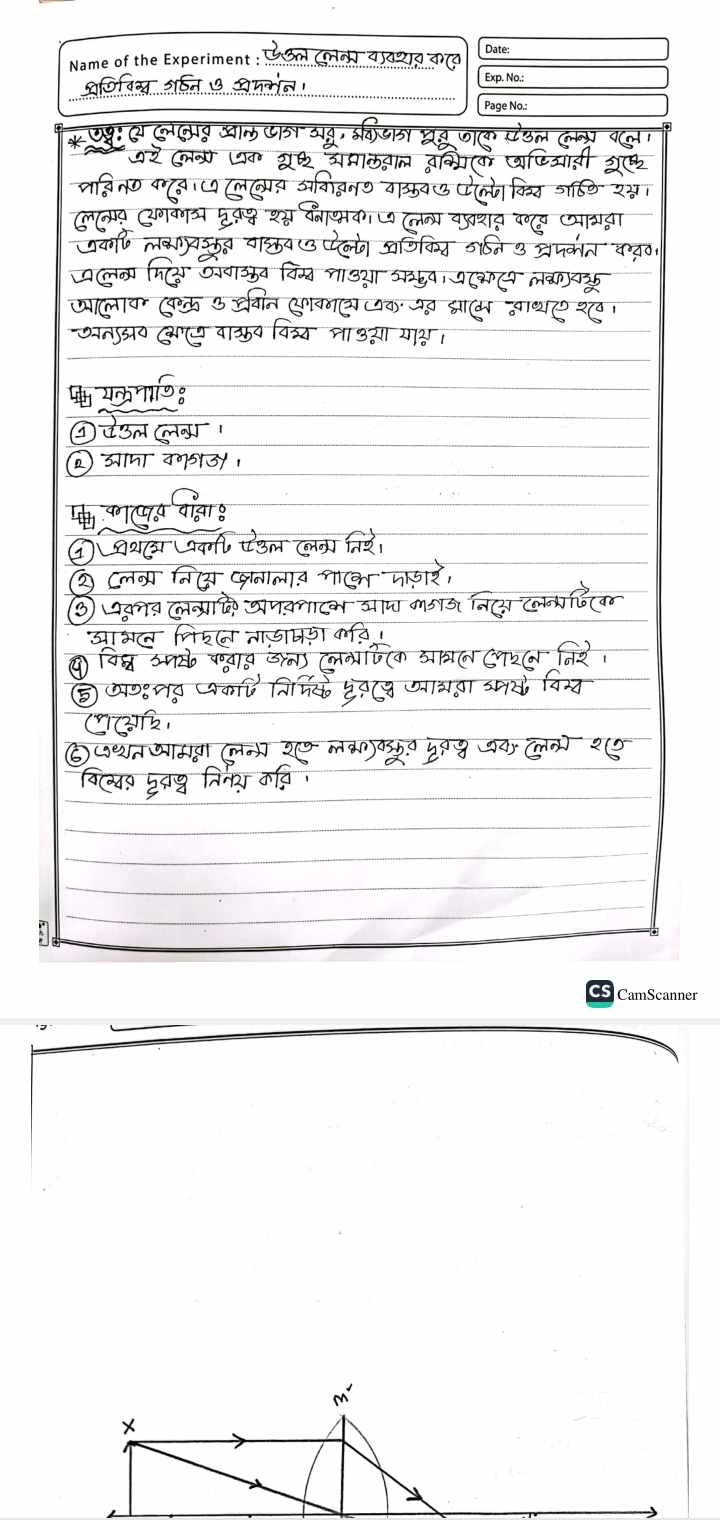 Name of the Experiment : উত্তল লেন্স ব্যবহার করে
প্রতিবিম্ব গঠন ও প্রদর্শন।
Date:
Exp. No.:
Page No.:
* তত্ত্ব: যে লেন্সের প্রান্ত ভাগ সরু, মধ্যভাগ পুরু তাকে উত্তল লেন্স বলে।
এই লেন্স এক গুচ্ছ সমান্তরাল রশ্মিকে অভিসারী গুচ্ছে
পরিনত করে। এ লেন্সের সাধারনত বাস্তব ও উল্টো বিম্ব গঠিত হয়।
লেন্সের ফোকাস দূরত্ব হয় ধনাত্মক। এ লেন্স ব্যবহার করে আমরা
একটি লক্ষ্যবস্তুর বাস্তব ও উল্টো প্রতিবিম্ব গঠন ও প্রদর্শন করব।
এলেন্স দিয়ে অবাস্তব বিম্ব পাওয়া সম্ভব। এক্ষেত্রে লক্ষ্যবস্তু
আলোক কেন্দ্র ও প্রধান ফোকাসে এবং এর মাঝে রাখতে হবে।
অন্যসব ক্ষেত্রে বাস্তব বিম্ব পাওয়া যায়।
যন্ত্রপাতি:
① উত্তল লেন্স ।
② সাদা কাগজ ।
কাজের ধারা:
① প্রথমে একটি উত্তল লেন্স নিই।
② লেন্স নিয়ে জানালার পাশে দাড়াই।
③ এরপর লেন্সটির অপরপাশে সাদা কাগজ নিয়ে লেন্সটিকে
সামনে পিছনে নাড়াচাড়া করি।
④ বিম্ব স্পষ্ট করার জন্য লেন্সটিকে সামনে পেছনে নিই ।
⑤ অতঃপর একটি নির্দিষ্ট দূরত্বে আমরা স্পষ্ট বিম্ব
পেয়েছি।
⑥ এখন আমরা লেন্স হতে লক্ষ্যবস্তুর দূরত্ব এবং লেন্স হতে
বিম্বের দূরত্ব নির্নয় করি ।
CS CamScanner
M'
X